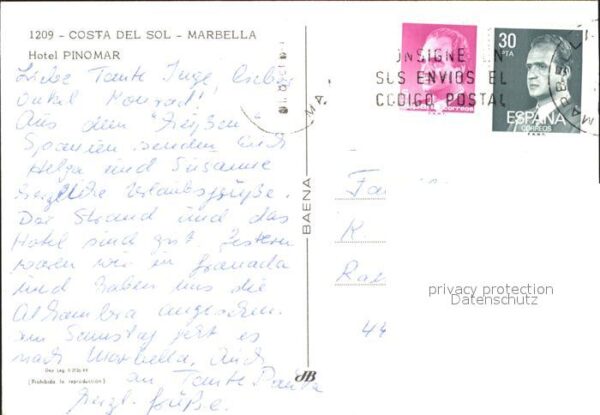 1209 - COSTA DEL SOL - MARBELLA
Hotel PINOMAR
Liebe Tante Inge, lieber
Onkel Konrad!
Aus dem "heißen"
Spanien senden Euch
Helga und Susanne
herzliche Urlaubsgrüße.
Der Strand und das
Hotel sind gut. Gestern
waren wir in Granada
und haben uns die
Alhambra angesehen.
am Samstag geht es
nach Marbella. Auch
an Tante Paula
herzl. Grüße.
Dep. Leg. B.
(Prohibida la reproducción)
BAENA
dB
CONSIGNE EN
SUS ENVIOS EL
CODIGO POSTAL
MARBELLA
30
PTA
ESPAÑA
CORREOS
correos
Fa
K.
Ra
44
privacy protection
Datenschutz